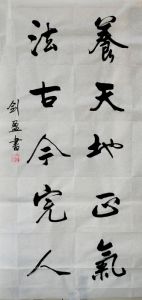 養天地正氣
法古今完人
劍盈書